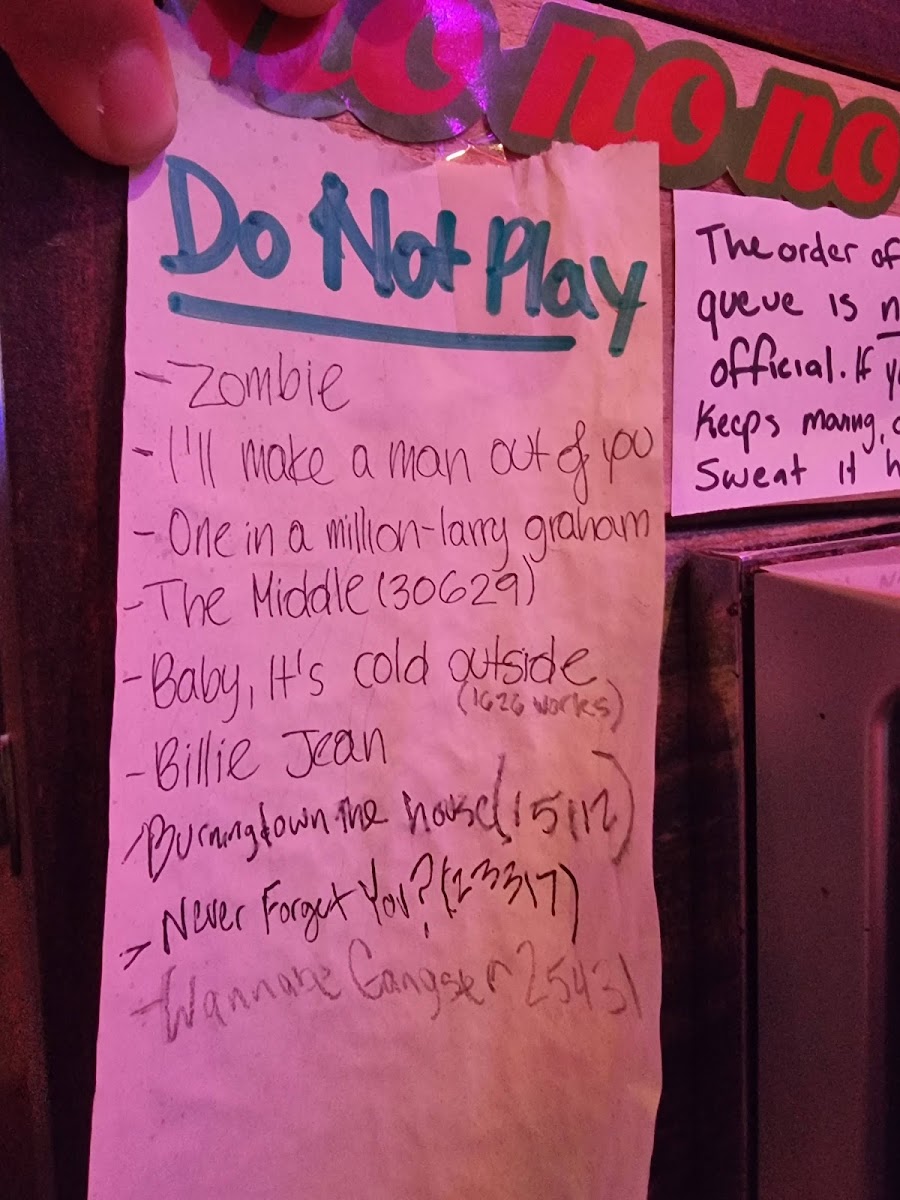 no no no
Do Not Play
- Zombie
- I'll make a man out of you
- One in a million-larry graham
- The Middle (30629)
- Baby, It's cold outside
(1626 works)
- Billie Jean
- Burning down the house (15112)
- Never Forget You? (23317)
- Wannabe Gangster 25431
The order of
queue is n
official. If y
keeps moving,
sweat it h